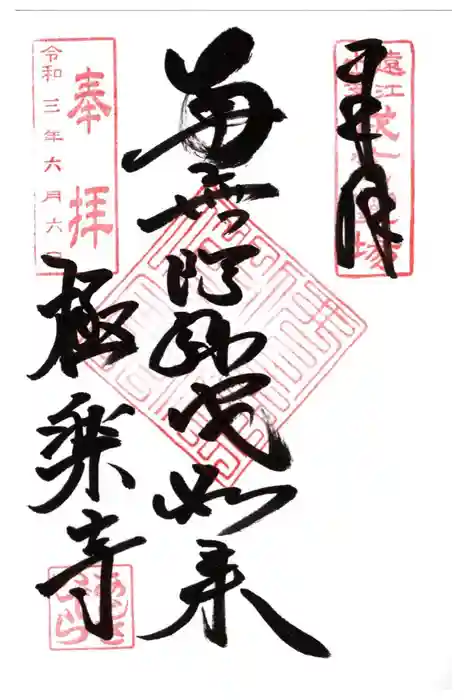 遠江
霊場
南無阿弥陀如来
奉拝
令和三年六月六日
極楽寺